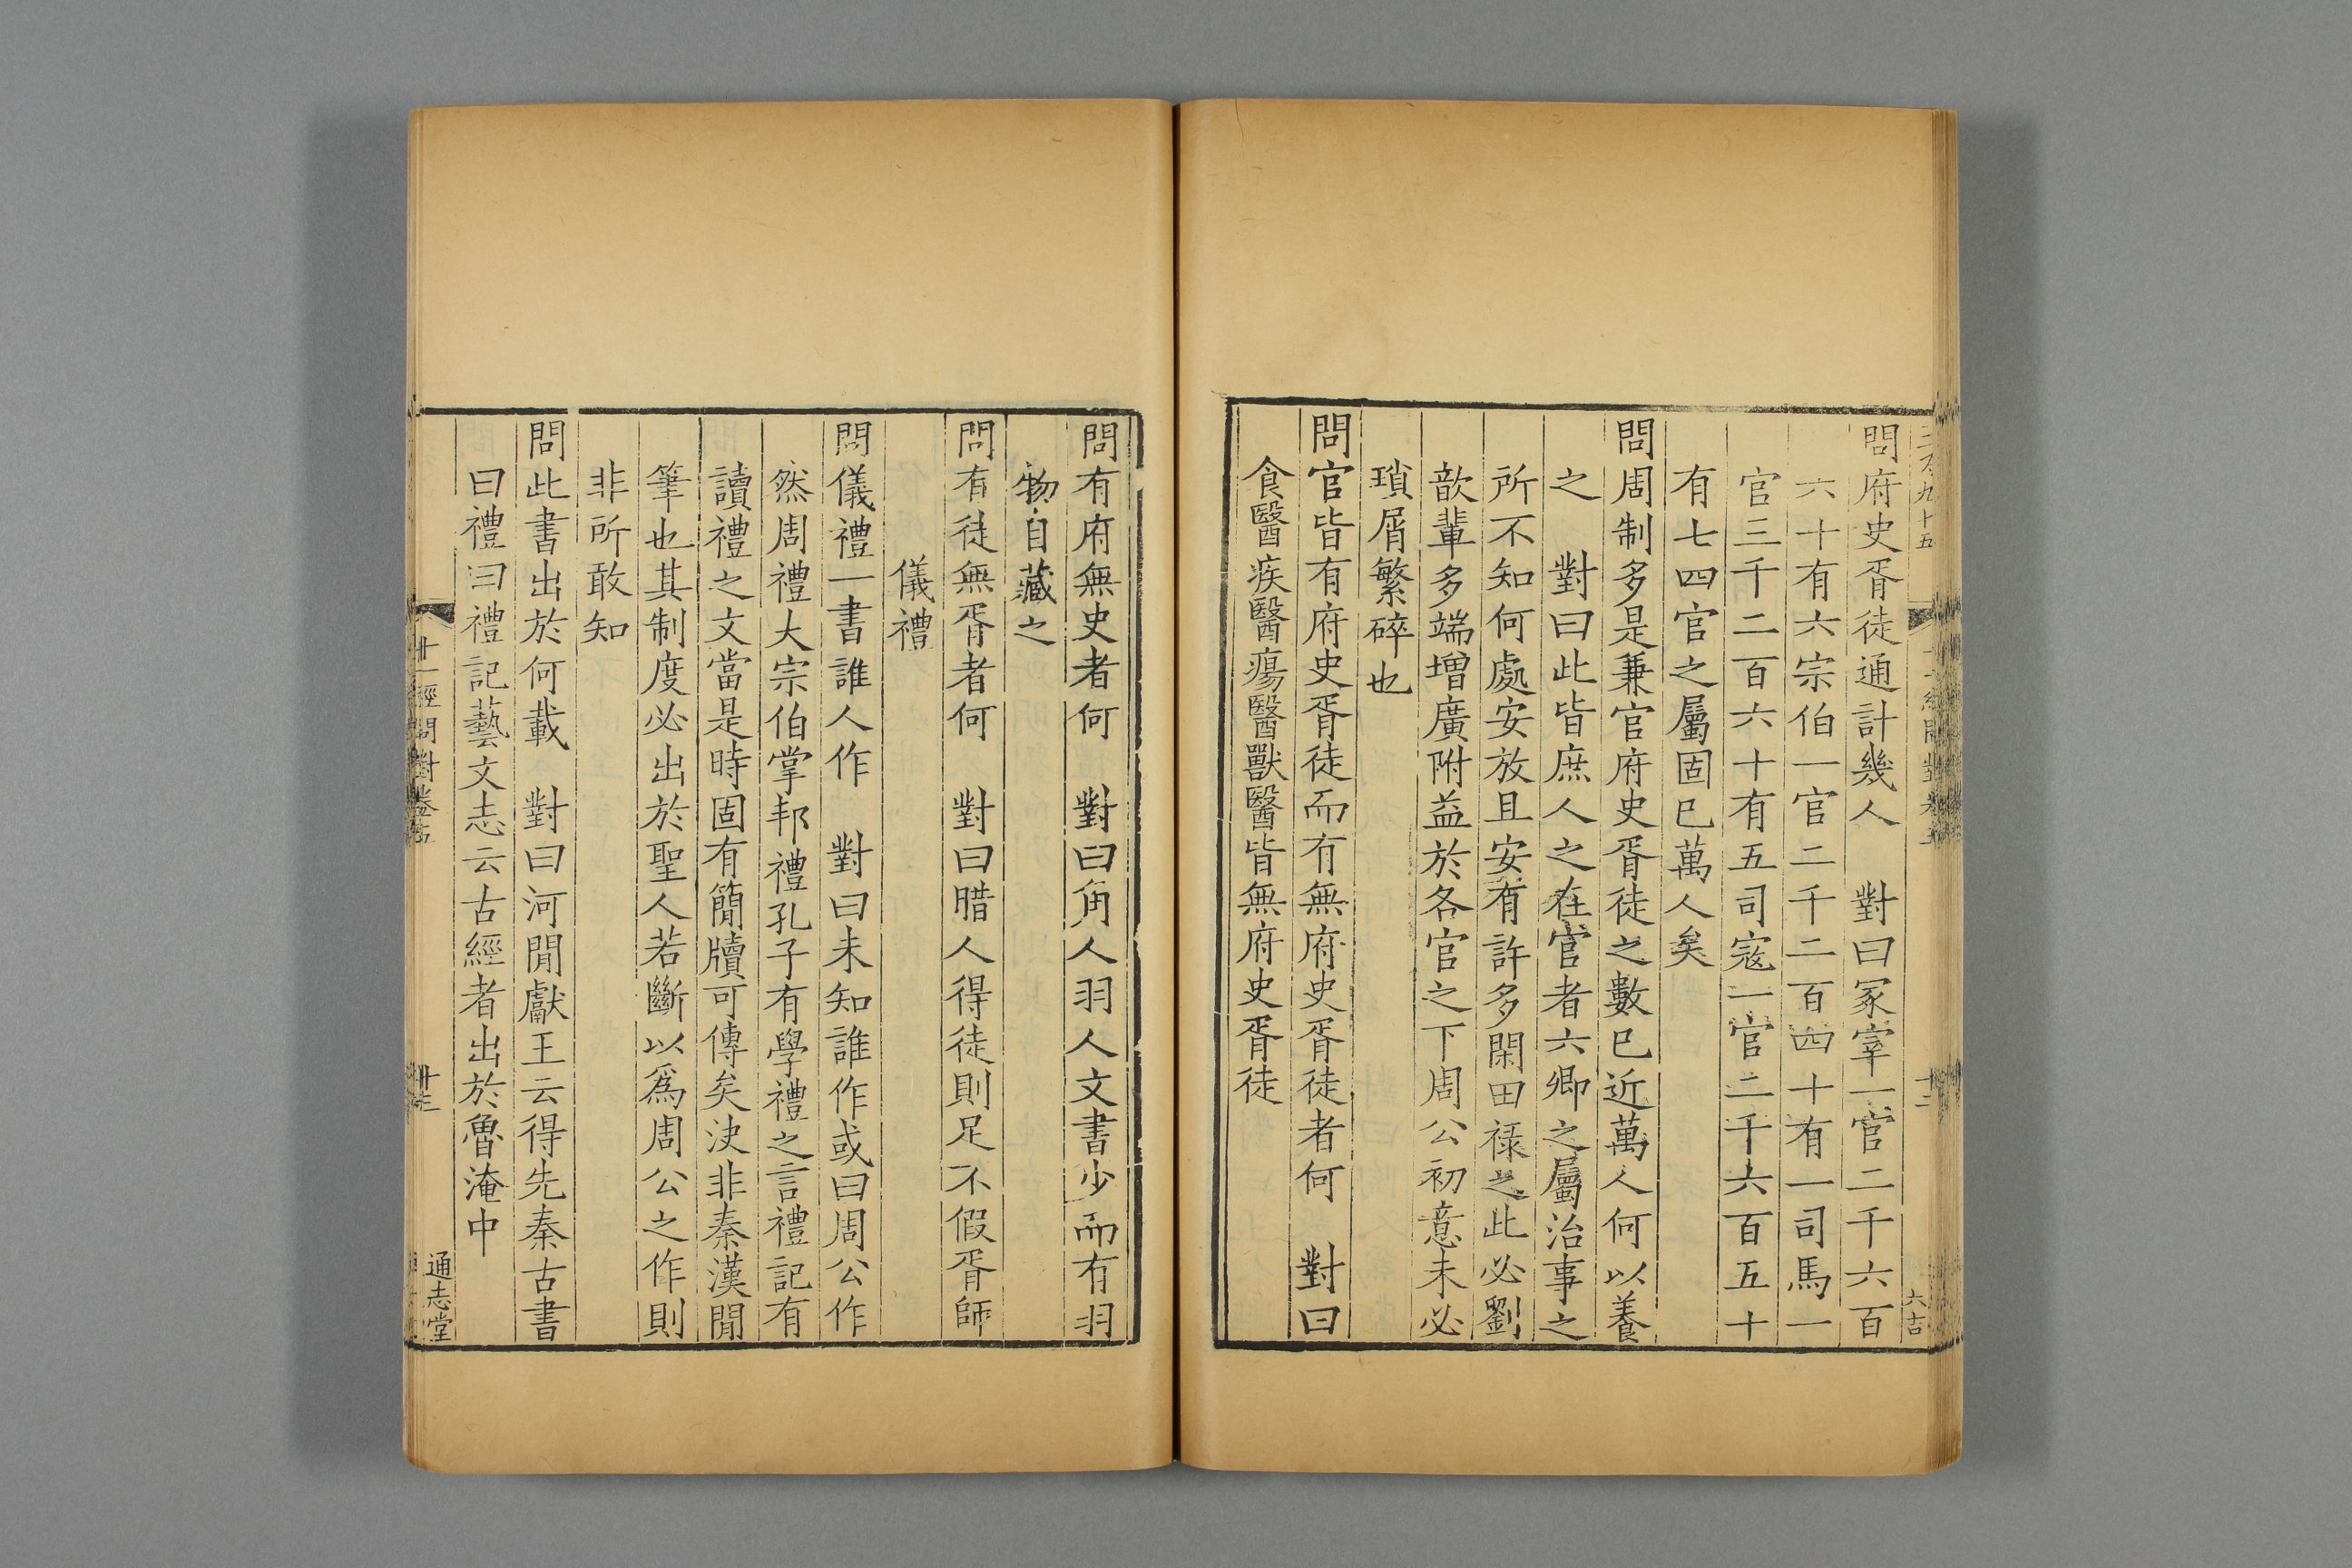 問府史胥徒通計幾人　對曰冡宰一官二千六百
六十有六宗伯一官二千二百四十有一司馬一
官三千二百六十有五司寇一官二千六百五十
有七四官之屬固已萬人矣
問周制多是兼官府史胥徒之數已近萬人何以養
之　對曰此皆庶人之在官者六卿之屬治事之
所不知何處安放且安有許多閑田禄之此必劉
歆輩多端増廣附益於各官之下周公初意未必
瑣屑繁碎也
問官皆有府史胥徒而有無府史胥徒者何　對曰
食醫疾醫瘍醫獸醫皆無府史胥徒
問有府無史者何　對曰角人羽人文書少而有羽
物自藏之
問有徒無胥者何　對曰腊人得徒則足不假胥師
儀禮
問儀禮一書誰人作　對曰未知誰作或曰周公作
然周禮大宗伯掌邦禮孔子有學禮之言禮記有
讀禮之文當是時固有簡牘可傳矣決非秦漢閒
筆也其制度必出於聖人若斷以為周公之作則
非所敢知
問此書出於何載　對曰河閒獻王云得先秦古書
曰禮曰禮記藝文志云古經者出於魯淹中
十一經問對卷五
十三
通志堂